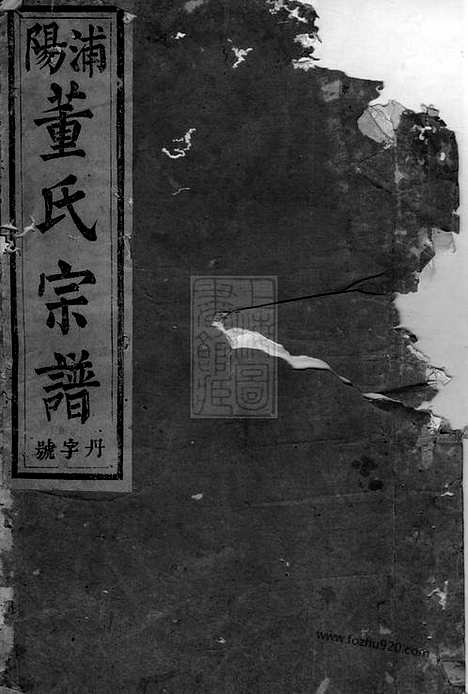 浦陽
董氏宗譜
丹字號
www.fozhu920.com